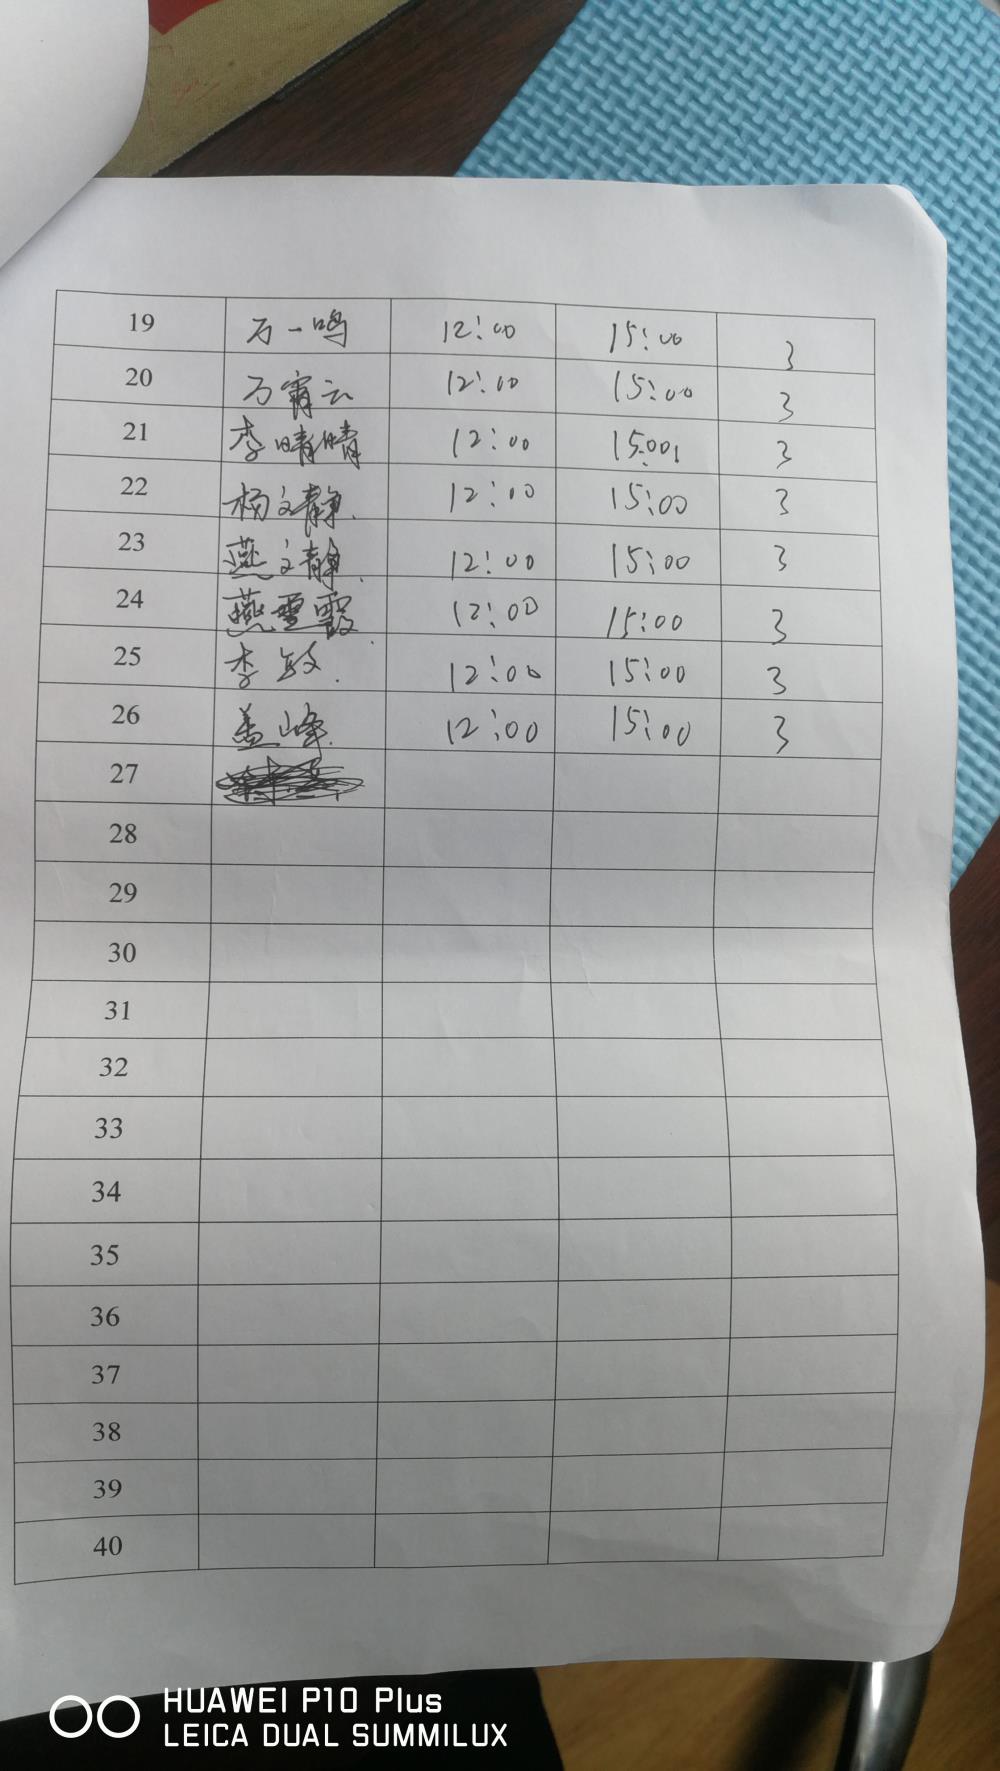 19 万一鸣 12:00 15:00 3
20 万霄云 12:00 15:00 3
21 李晴晴 12:00 15:00 3
22 杨文静. 12:00 15:00 3
23 燕文静. 12:00 15:00 3
24 燕雪霞. 12:00 15:00 3
25 李敏. 12:00 15:00 3
26 盖峰. 12:00 15:00 3
27
28
29
30
31
32
33
34
35
36
37
38
39
40
HUAWEI P10 Plus
LEICA DUAL SUMMILUX